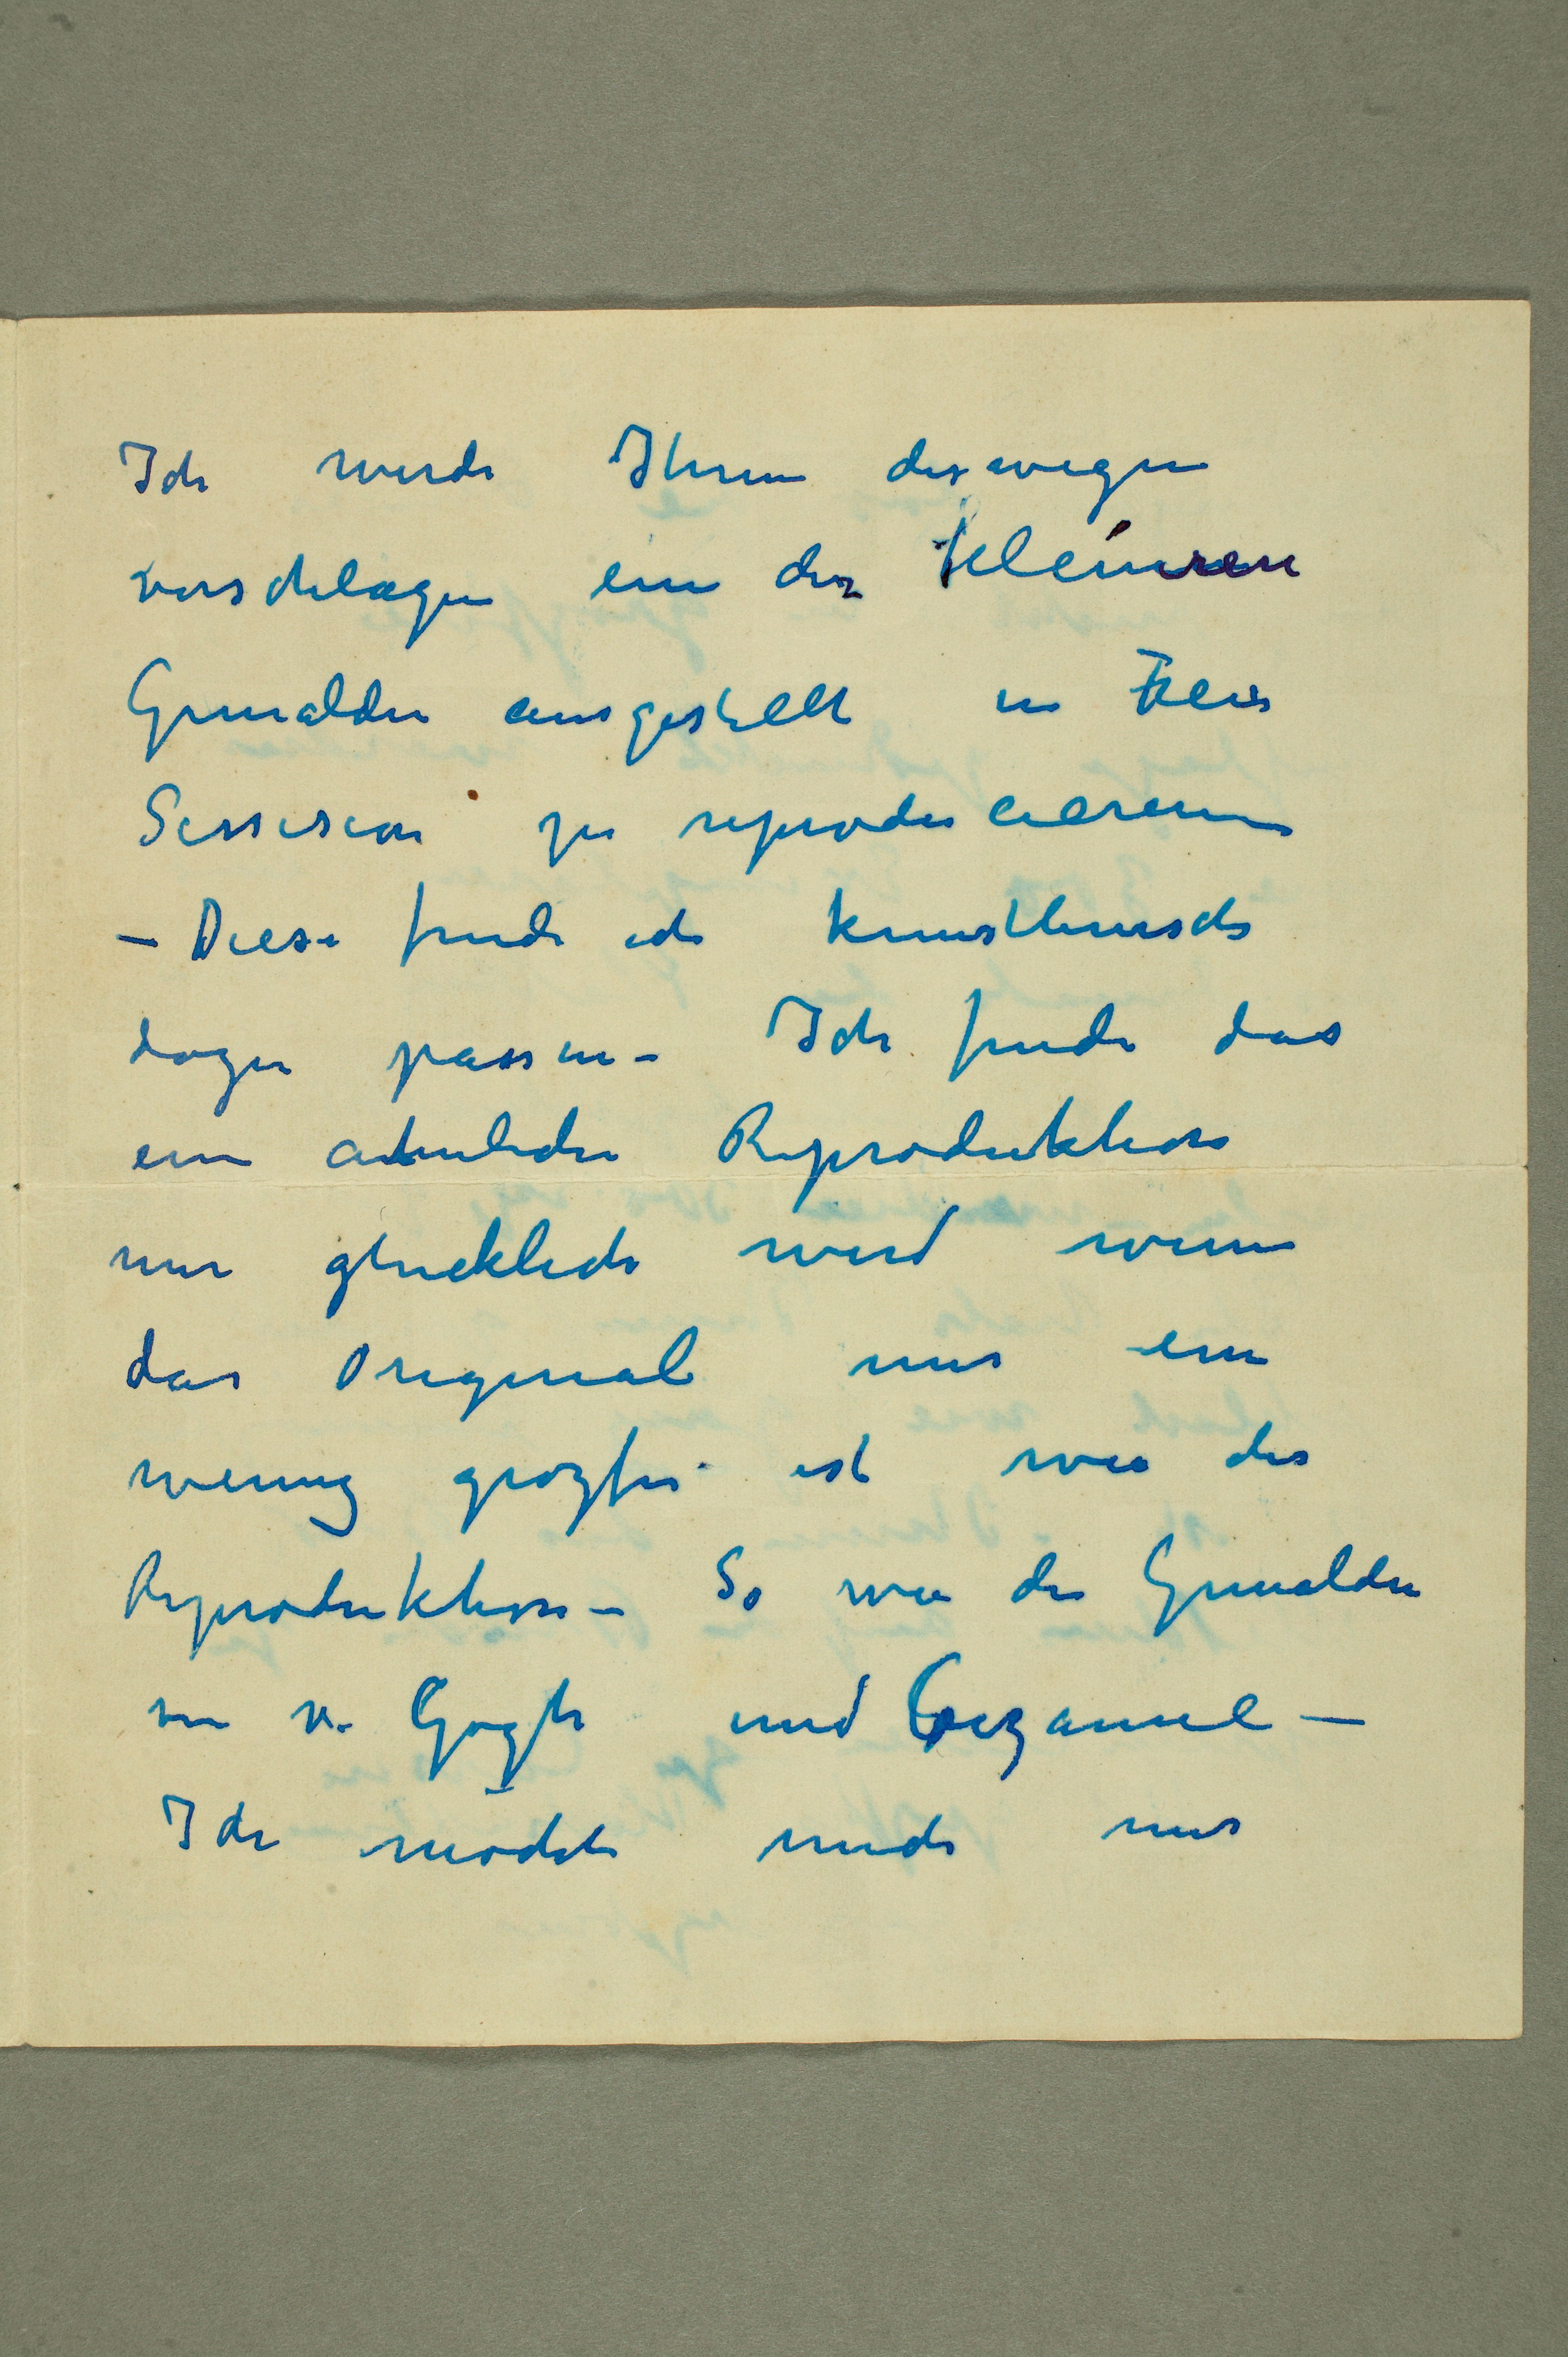 Ich werde Ihnen deswegen
vorschlagen ein der kleinren
Gemalden ausgestellt in
Sessision zu reproducieren
– Diese finde ich kunstlerisch
dazu passen – Ich finde das
ein ahnlichen Reproduktion
nur glucklich wird wenn
das Original nur ein
wenig grozser ist wie die
Reproduktion – So wie die Gemalden
von v. Gogh und Cezanne –
Ich möchte mich nur